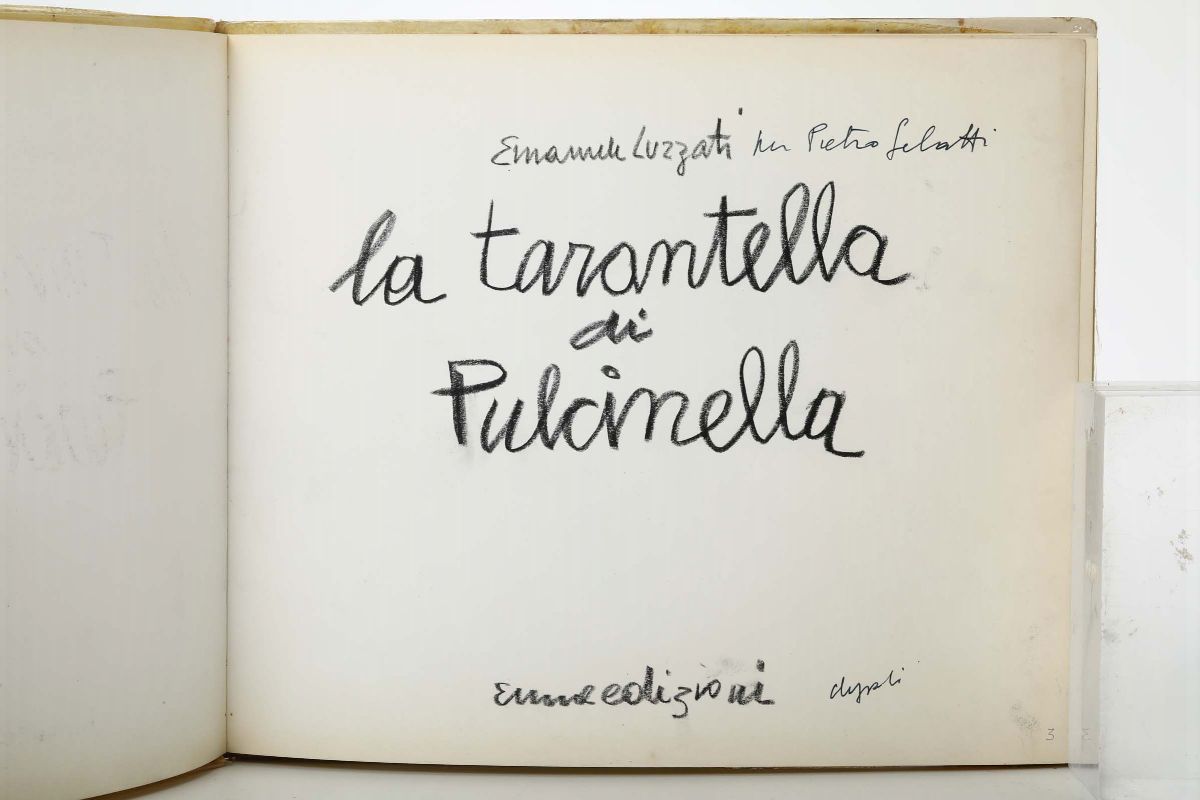 Emanuele Luzzati per Pietro Gelatti
la tarantella
di
Pulcinella
emme edizioni
3